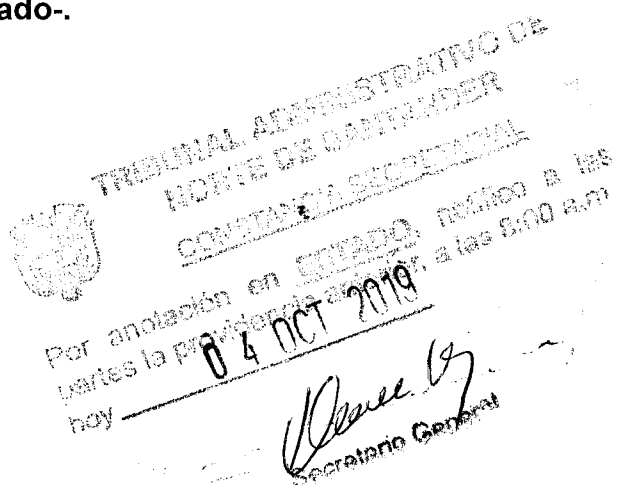 ado-.
TRIBUNAL ADMINISTRATIVO DE
NORTE DE SANTANDER
CONSTANCIA SECRETARIAL
Por anotación en ESTADO, notifico a las
partes la providencia anterior, a las 8:00 a.m
hoy 04 OCT 2019
Secretario General